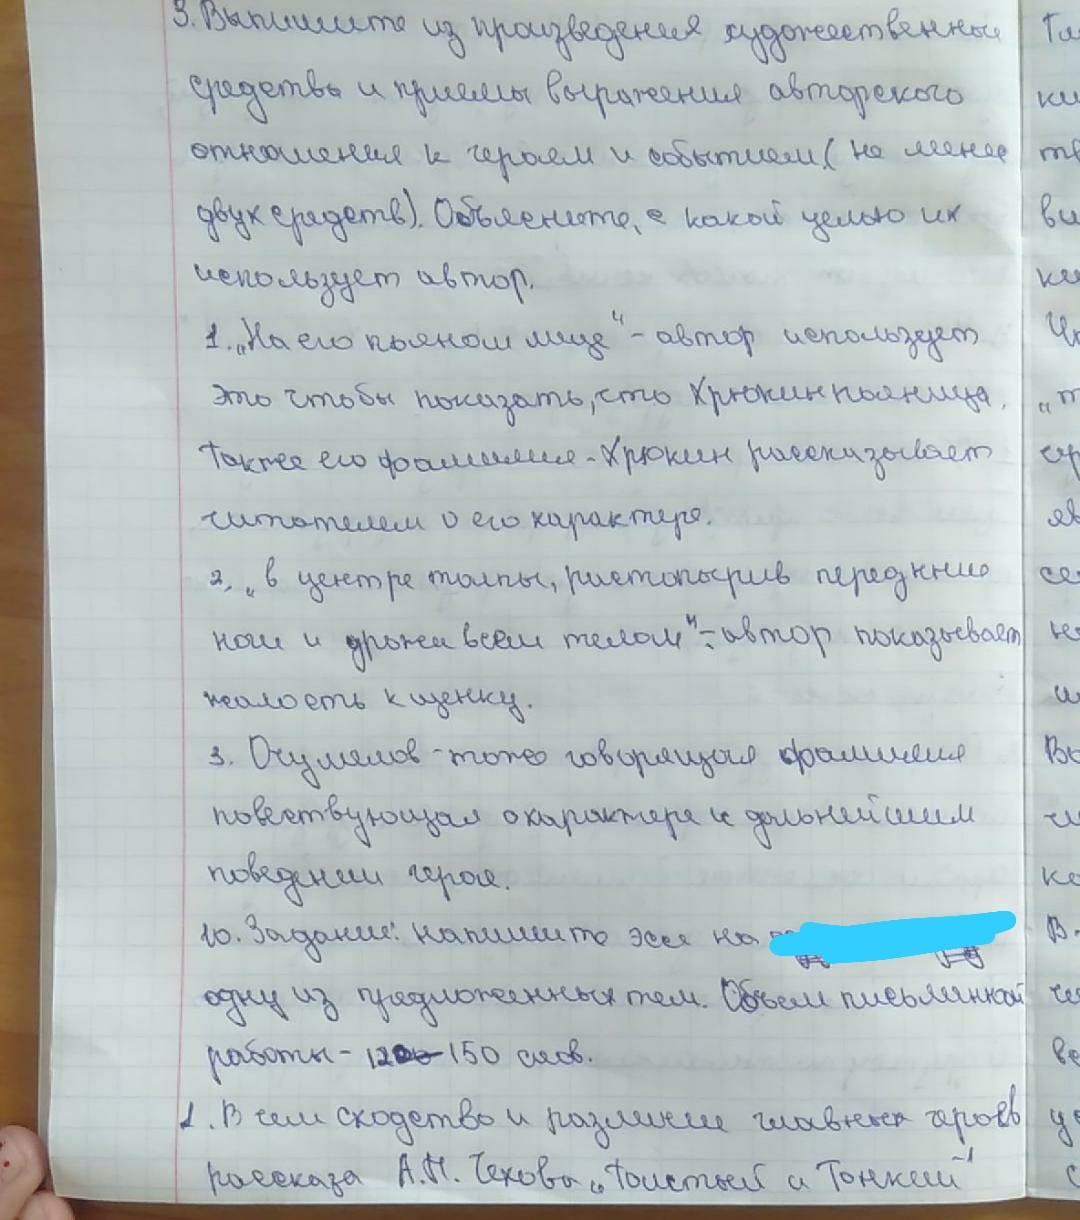 9. Выпишите из произведения художественные Гл
средства и приемы выражения авторского ки
отношения к героям и событиям ( не менее
двух средств). Объясните, с какой целью их ви
использует автор. ки
1. „На его пьяном лице" - автор использует
это чтобы показать, что Хрюкин пьяница.
также его фамилия - Хрюкин рассказывает
читателем о его характере. яв
2. „в центре толпы, растопырив передние се
ноги и дрожа всем телом" - автор показывает не
жалость к щенку. и
3. Очумелов - тоже говорящая фамилия Во
повествующая о характере и дальнейшем
поведении героя. ко
10. Задание: напишите эссе на В
одну из предложенных тем. Объем письменной
работы - 150 слов. ве
1. В чем сходство и различие главных героев
рассказа А.П. Чехова „Толстый и Тонкий" с